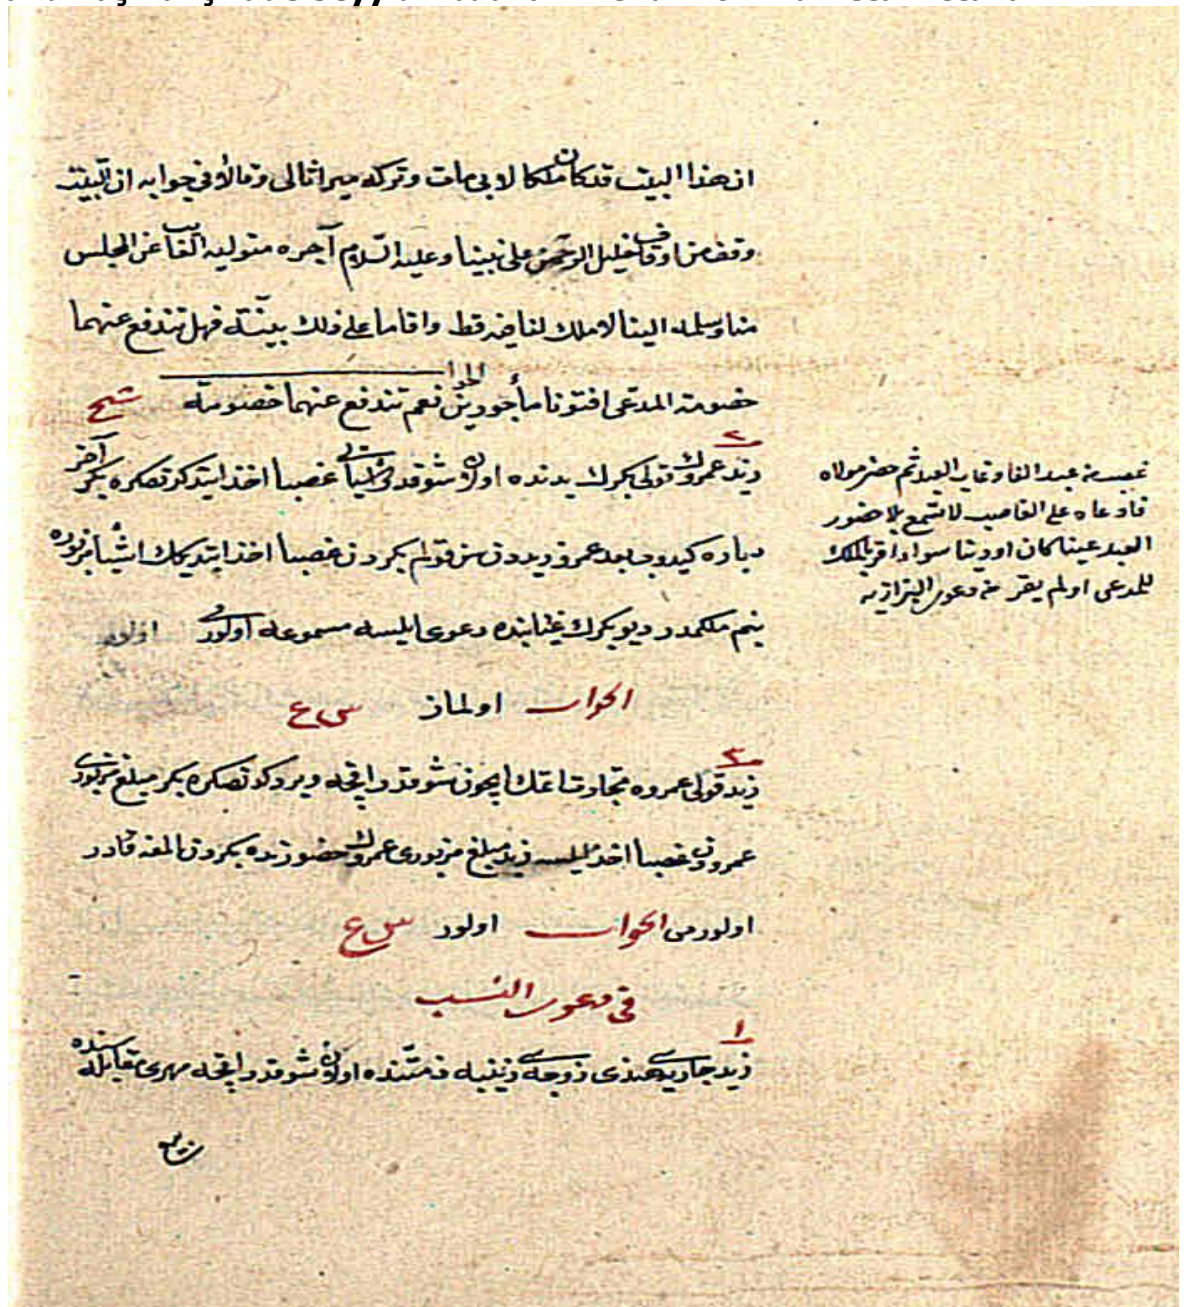 ان هذا البيت قد كان ملكا لابي مات وتركه ميراثا لى وقالا فى جوابه ان البيت
وقف من اوقاف خليل الرحمن على نبينا وعليه السلام آجره متوليه الغائب عن المجلس
منا وسلمه الينا لا ملك لنا فيه قط واقاما على ذلك بينة فهل تندفع عنهما
خصومة المدعى افتونا مأجورين نعم تندفع عنهما خصومته
٢
زيد عمروك قولى بكرك يدنده اولان شو قدر اشيايى غصبا اخذ ايتدكدنصكره بكر آخر
دياره كيدوب بعده عمرو زيددن سن قولم بكردن غصبا اخذ ايتديكك اشيا مزبوره
بنم ملكمدر ديو بكرك غيابنده دعوى ايلسه مسموعه اولورمى
الجواب اولماز
٣
زيد قولى عمروه تجارت اتمك ايچون شو قدر اقچه ويردكدنصكره بكر مبلغ مزبورى
عمرودن غصبا اخذ ايلسه زيد مبلغ مزبورى عمروك حضورنده بكردن المغه قادر
اولورمى الجواب اولور
فى دعوى النسب
١
زيد جاريه‌سى هندى زوجه‌سى زينبه ذمتنده اولان شو قدر اقچه مهرى مقابله‌سنده
غصب من عبد الفا وغاب العبد ثم حضر مولاه
فادعاه على الغاصب لا تسمع بلا حضور
العبد عينا كان او دينا سواء اقر بالملك
للمدعى او لم يقر من دعوى البزازيه